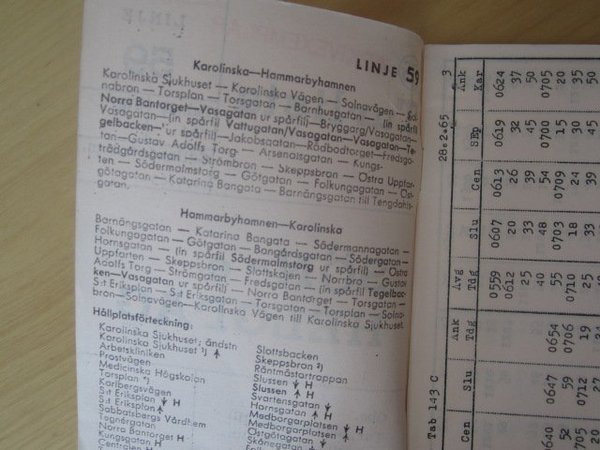 LINJE 59
Karolinska—Hammarbyhamnen
Karolinska Sjukhuset — Karolinska Vägen — Solnavägen —
nabron — Torsplan — Torsgatan — Barnhusgatan — (in spårfil
Norra Bantorget—Vasagatan ur spårfil)—Bryggarg/Vasagatan—
Vasagatan—(in spårfil Vattugatan/Vasagatan—Vasagatan—Te-
gelbacken— ur spårfil)—Jakobsgatan—Rödbodtorget—Fredsga-
tan—Gustav Adolfs Torg — Arsenalsgatan — Kungs-
trädgårdsgatan — Strömbron — Skeppsbron — Östra Uppfar-
ten — Södermalmstorg — Götgatan — Folkungagatan — Öst-
götagatan — Katarina Bangata — Barnängsgatan till Tengdahls-
gatan.
Hammarbyhamnen—Karolinska
Barnängsgatan — Katarina Bangata — Södermannagatan —
Folkungagatan — Götgatan — Bangårdsgatan — Södergatan —
Hornsgatan — (in spårfil Södermalmstorg ur spårfil) — Östra
Uppfarten — Skeppsbron — Slottskajen — Norrbro — Gustav
Adolfs Torg — Strömgatan — Fredsgatan — (in spårfil Tegelbac-
ken—Vasagatan ur spårfil) — Norra Bantorget — Torsgatan —
S:t Eriksplan — S:t Eriksgatan — Torsgatan — Torsplan — Solna-
bron—Solnavägen—Karolinska Vägen till Karolinska Sjukhuset.
Hållplatsförteckning:
Karolinska Sjukhuset; ändstn
Karolinska Sjukhuset ¹) ↑
Arbetskliniken
Prostvägen
Medicinska Högskolan
Torsplan *)
Karlbergsvägen
S:t Eriksplan ↓ H
S:t Eriksplan ↑
Sabbatsbergs Vårdhem
Tegnérgatan
Norra Bantorget H
Kungsgatan H
Slottsbacken
Skeppsbron ²)
Räntmästartrappan
Slussen ↓ H
Slussen ↑ H
Svartensgatan ↓
Hornsgatan ↑ H
Medborgarplatsen ↓ H
Medborgarplatsen ↑
Östgötagatan ↓
Skånegatan ↑
Tab 143 C
28.2.65
3
Cen 0640 52
Slu 0647 59 0712 27
Ank Tdg 0654 0706 19
Avg Tdg 0559 0612 25 40 55 0710 25
Slu 0607 20 33 48 0703 18 33
Cen 0613 26 39 54 0709 24 39
0619 32 45 0700 15 30 45
Ank Kar 0624 37 50 0705 20 35 50